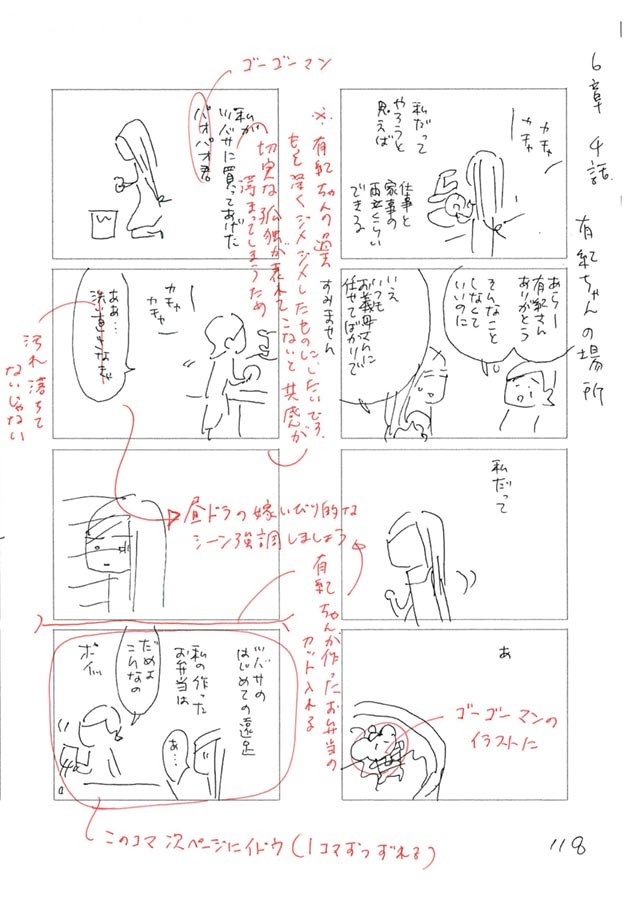 6章 4話 有紀ちゃんの場所
カチャ
カチャ
私だって
やろうと
思えば
仕事と
家事の
両立くらい
できる
あらー
有紀さん
ありがとう
そんなこと
しなくて
いいのに
いえ
いつも
お義母さんに
任せてばかりで
すみません
私だって
あ
ゴーゴーマンの
イラストに
ゴーゴーマン
私が
ツバサに買ってあげた
パオパオ君
※有紀ちゃんの過去
もを深くジメジメしたものにしたいです。
切実な孤独が表れてこないと共感が
薄まってしまうため
カチャ
カチャ
ああ…
洗い直さなきゃ
汚れ落ちて
ないじゃない
昼ドラの嫁いびり的な
シーン強調しましょう
有紀ちゃんが作ったお弁当の
カット入れる
ツバサの
はじめての遠足
私の作った
お弁当は
あ…
だめよ
こんなの
ポイッ
このコマ次ページにイドウ(1コマずつずれる)
118